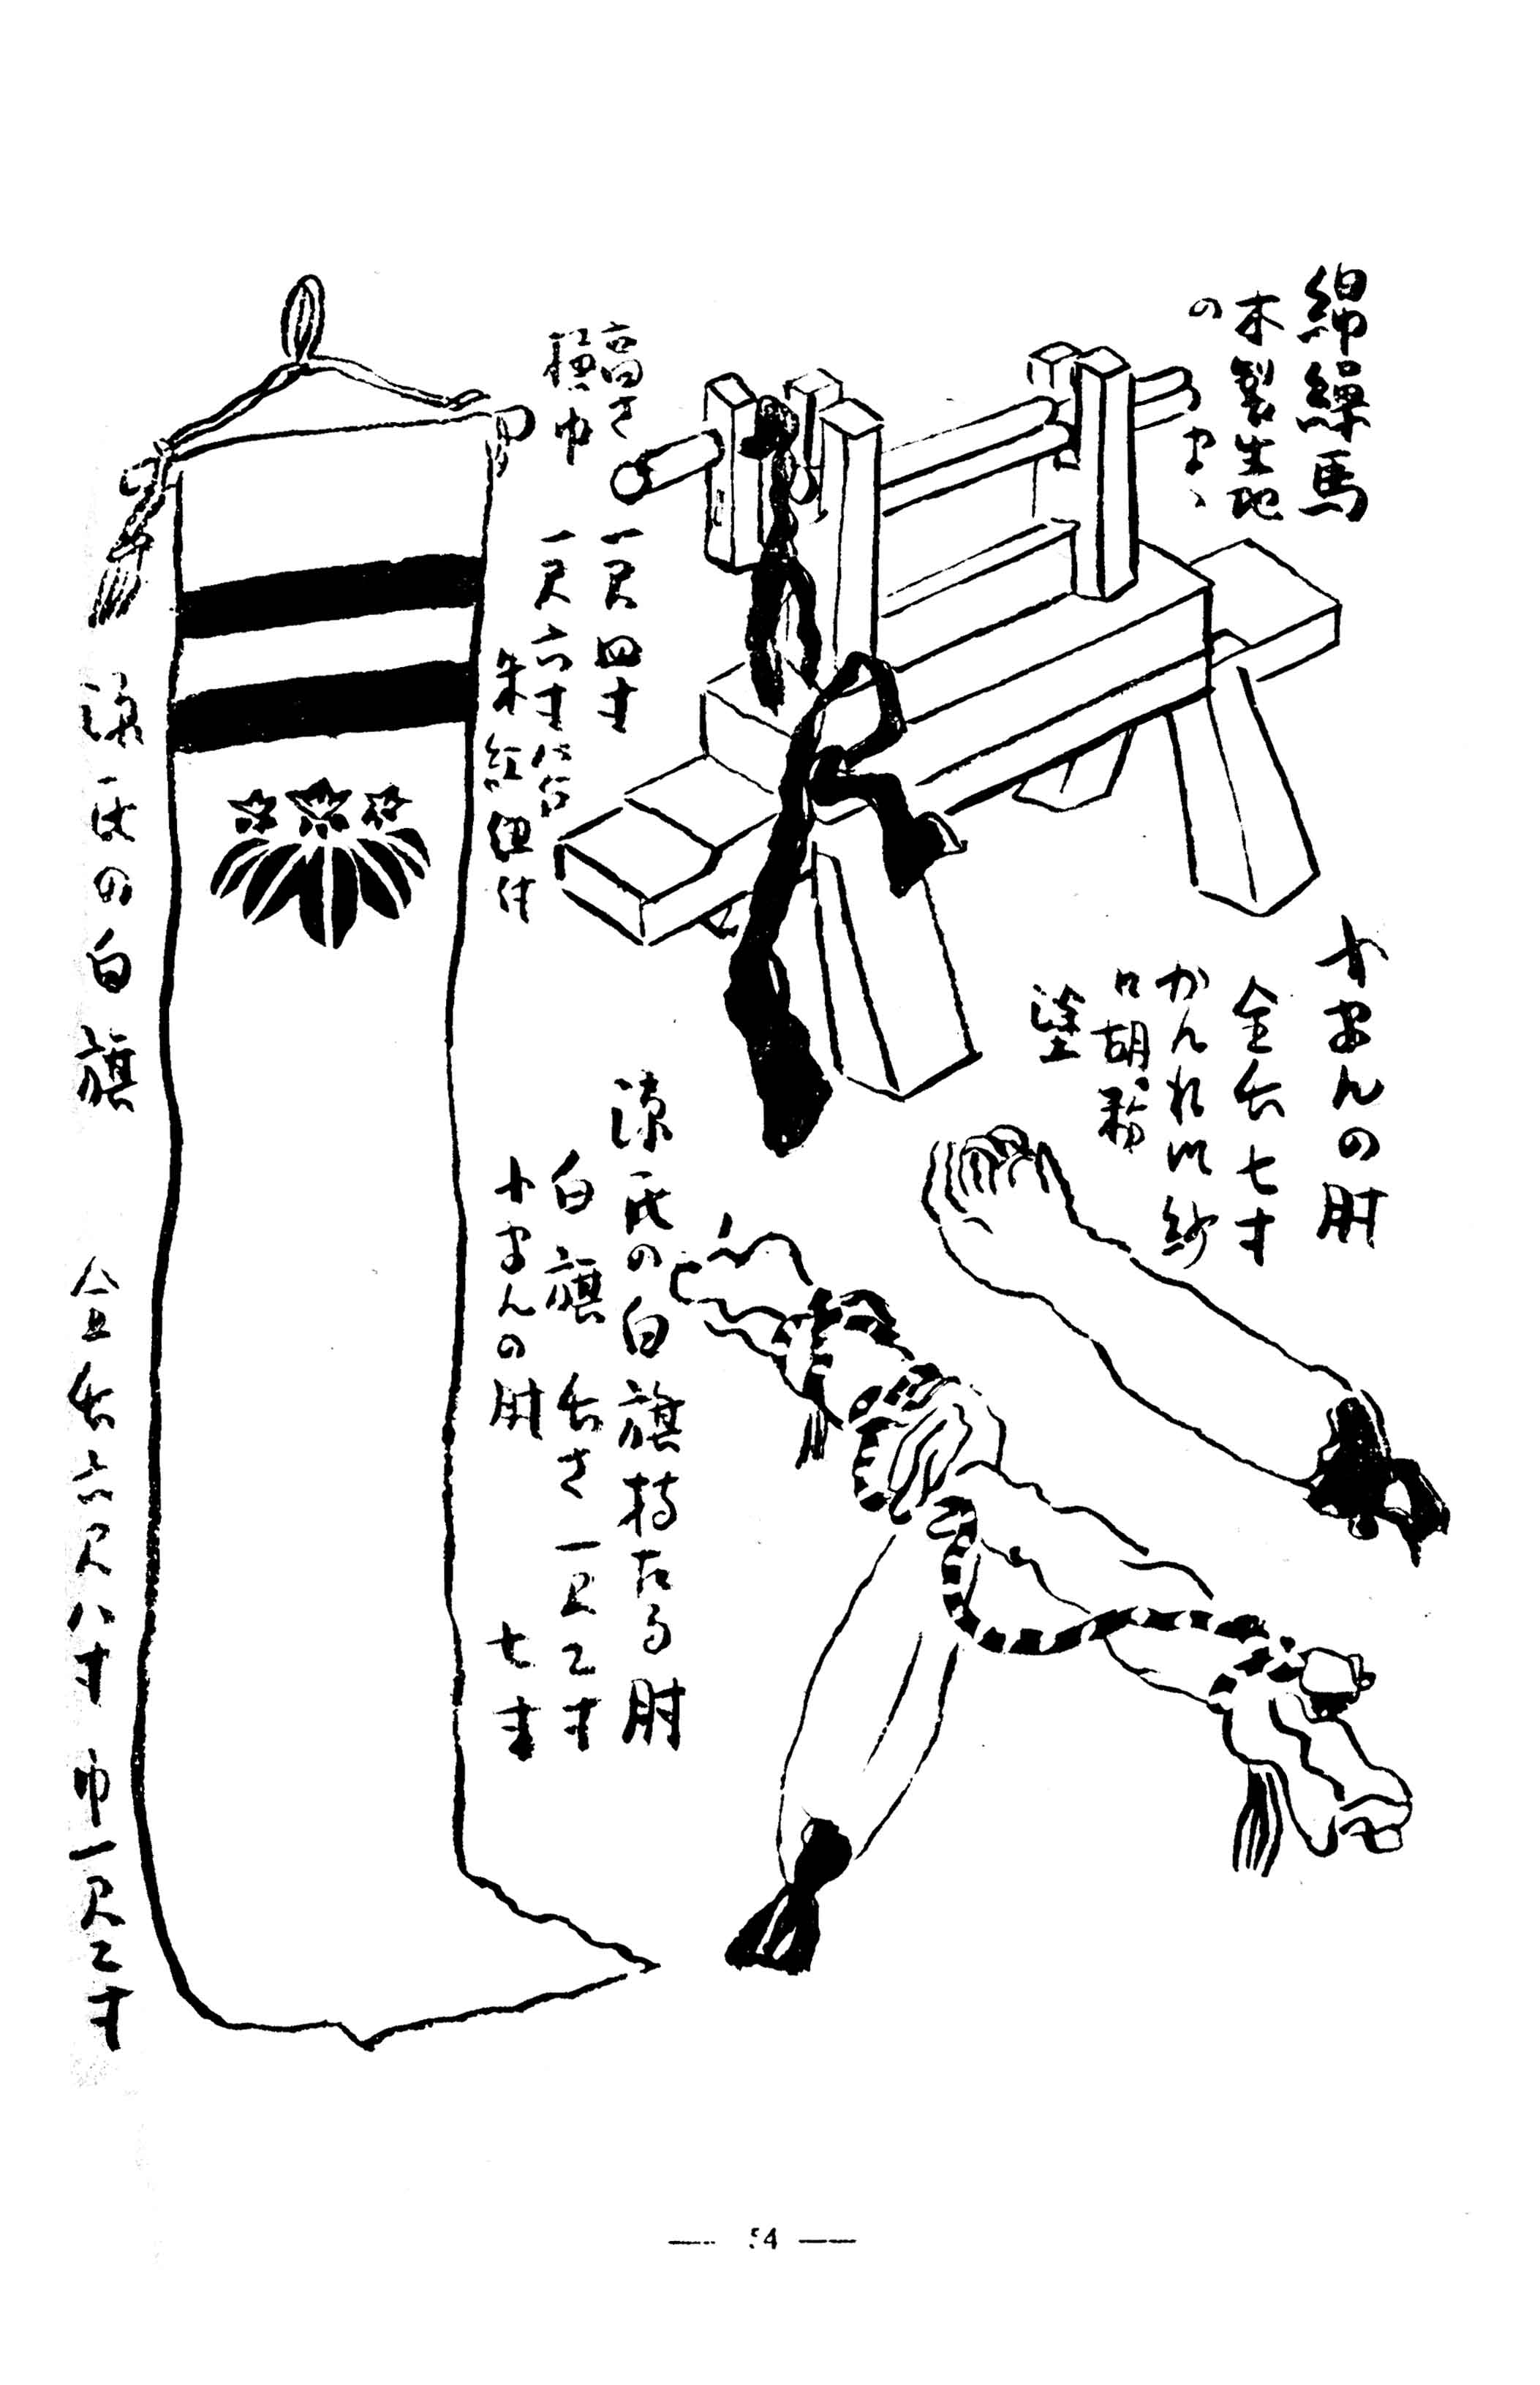 綿繰馬
木製生地
のまゝ
高さ 一尺四寸
横巾 一尺六寸
朱紅紐付
小まんの肘
全長七寸
かんれい紗
に胡粉
塗
源氏の白旗持たる肘
白旗 長さ一尺二寸
小まんの肘 七寸
源氏の白旗 全長六尺八寸 巾一尺二寸
— 54 —